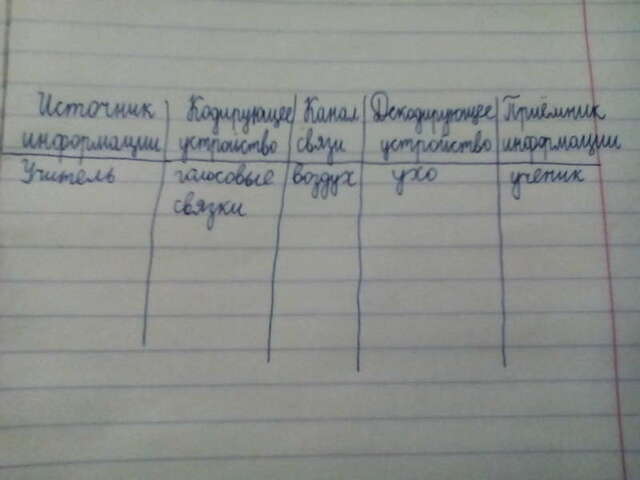 Источник Кодирующее Канал Декодирующее Приёмник
информации устройство связи устройство информации
Учитель голосовые воздух ухо ученик
связки